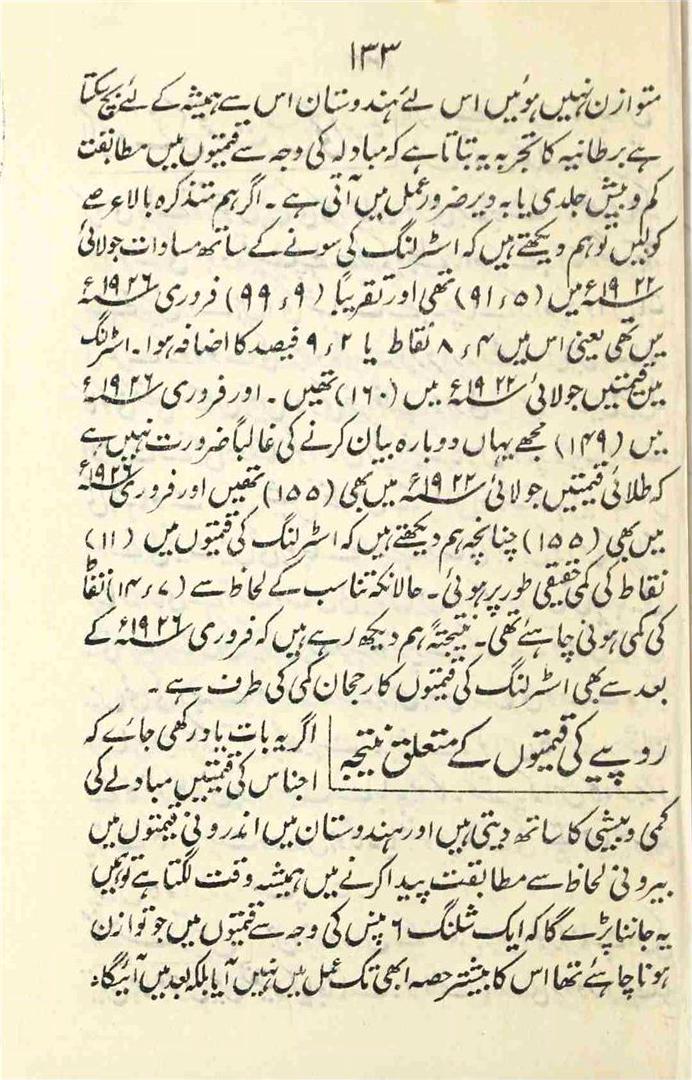 ۱۳۳
متوازن نہیں ہوئیں اس لئے ہندوستان اس سے ہمیشہ کے لئے بچ سکتا
ہے برطانیہ کا تجربہ یہ بتاتا ہے کہ مبادلہ کی وجہ سے قیمتوں میں مطابقت
کم و بیش جلدی یا بہ دیر ضرور عمل میں آتی ہے ۔ اگر ہم متذکرہ بالا عرصے
کو لیں تو ہم دیکھتے ہیں کہ اسٹرلنگ کی سونے کے ساتھ مساوات جولائی
۱۹۲۲ء میں (۹۱ء۵) تھی اور تقریباً (۹۹ء۹) فروری ۱۹۲۶ء
میں تھی یعنی اس میں ۸ء۴ نقاط یا ۹ء۲ فیصد کا اضافہ ہوا ۔ اسٹرلنگ
میں قیمتیں جولائی ۱۹۲۲ء میں (۱۶۰) تھیں ۔ اور فروری ۱۹۲۶ء
میں (۱۴۹) مجھے یہاں دوبارہ بیان کرنے کی غالباً ضرورت نہیں ہے
کہ طلائی قیمتیں جولائی ۱۹۲۲ء میں بھی (۱۵۵) تھیں اور فروری ۱۹۲۶ء
میں بھی (۱۵۵) چنانچہ ہم دیکھتے ہیں کہ اسٹرلنگ کی قیمتوں میں (۱۱)
نقاط کی کمی حقیقی طور پر ہوئی ۔ حالانکہ تناسب کے لحاظ سے (۱۴ء۷) نقاط
کی کمی ہونی چاہئے تھی ۔ نتیجتہً ہم دیکھ رہے ہیں کہ فروری ۱۹۲۶ء کے
بعد سے بھی اسٹرلنگ کی قیمتوں کا رجحان کمی کی طرف ہے ۔
روپیے کی قیمتوں کے متعلق نتیجہ
اگر یہ بات یاد رکھی جائے کہ
اجناس کی قیمتیں مبادلے کی
کمی و بیشی کا ساتھ دیتی ہیں اور ہندوستان میں اندرونی قیمتوں میں
بیرونی لحاظ سے مطابقت پیدا کرنے میں ہمیشہ وقت لگتا ہے تو ہمیں
یہ جاننا پڑے گا کہ ایک شلنگ ۶ پنس کی وجہ سے قیمتوں میں جو توازن
ہونا چاہئے تھا اس کا بیشتر حصہ ابھی تک عمل میں نہیں آیا بلکہ بعد میں آئیگا ۔